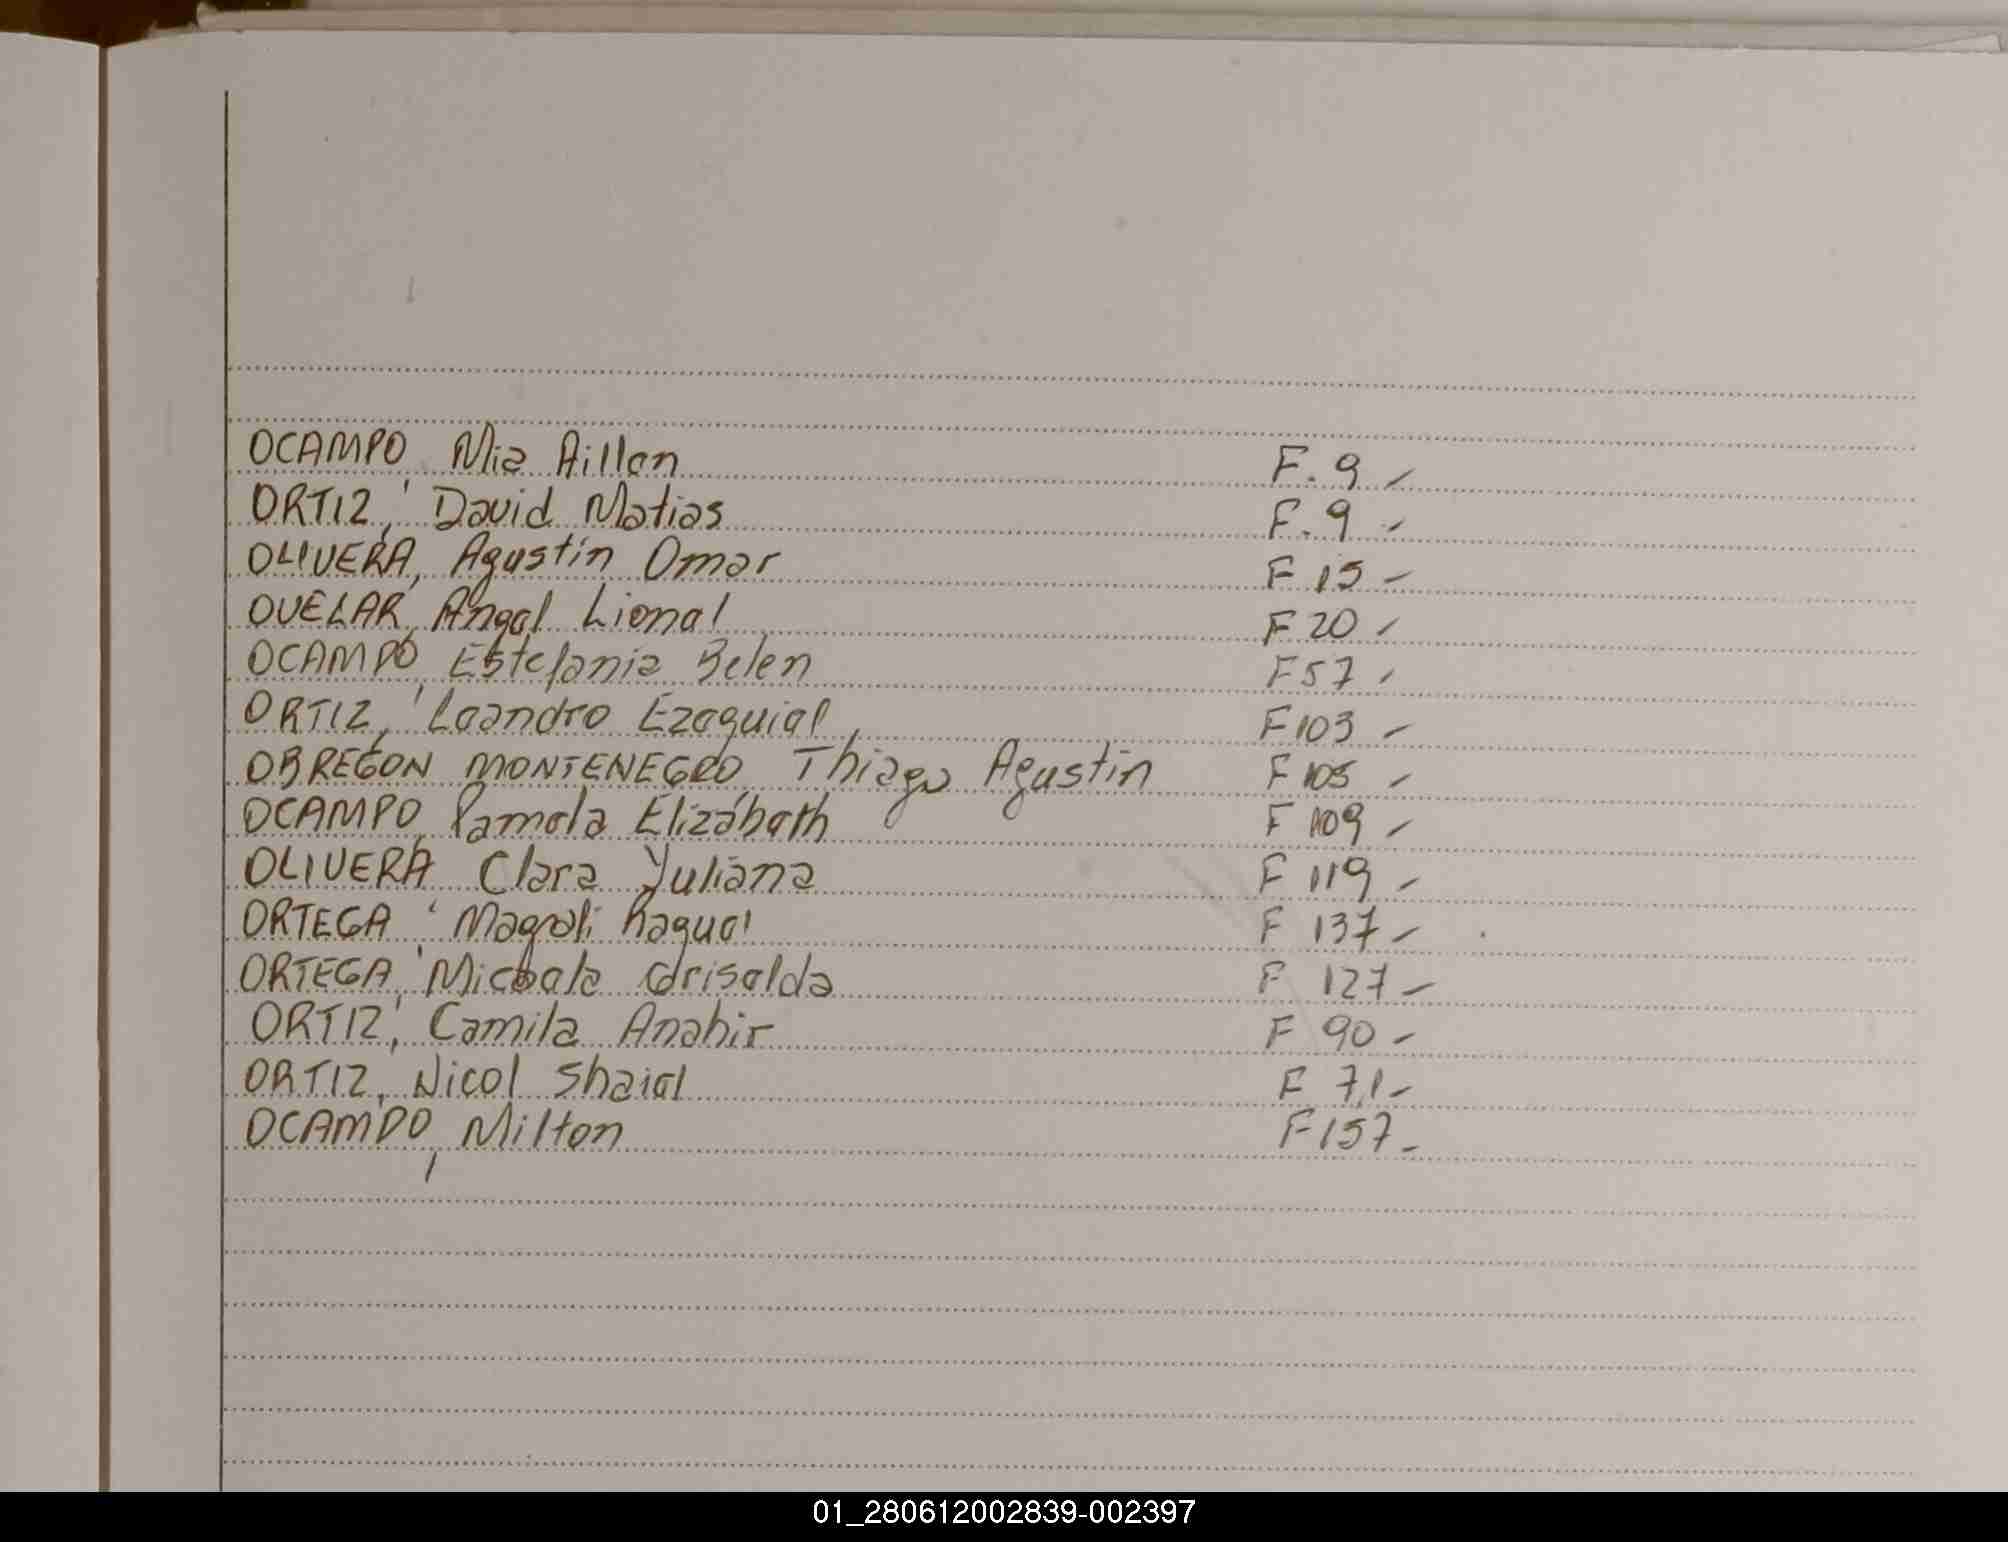 OCAMPO, Mia Aillen F. 9 -
ORTIZ, David Matias F. 9 -
OLIVERA, Agustín Omar F 15 -
OVELAR, Angel Lionel F 20 -
OCAMPO, Estefania Belen F 57 -
ORTIZ, Leandro Ezequiel F 103 -
OBREGON MONTENEGRO, Thiago Agustín F 105 -
OCAMPO, Pamela Elizabeth F 109 -
OLIVERA, Clara Yuliana F 119 -
ORTEGA, Magali Raquel F 137 -
ORTEGA, Micaela Griselda F 127 -
ORTIZ, Camila Anahir F 90 -
ORTIZ, Nicol Shaiel F 71 -
OCAMPO, Milton F 157 -
01_280612002839-002397